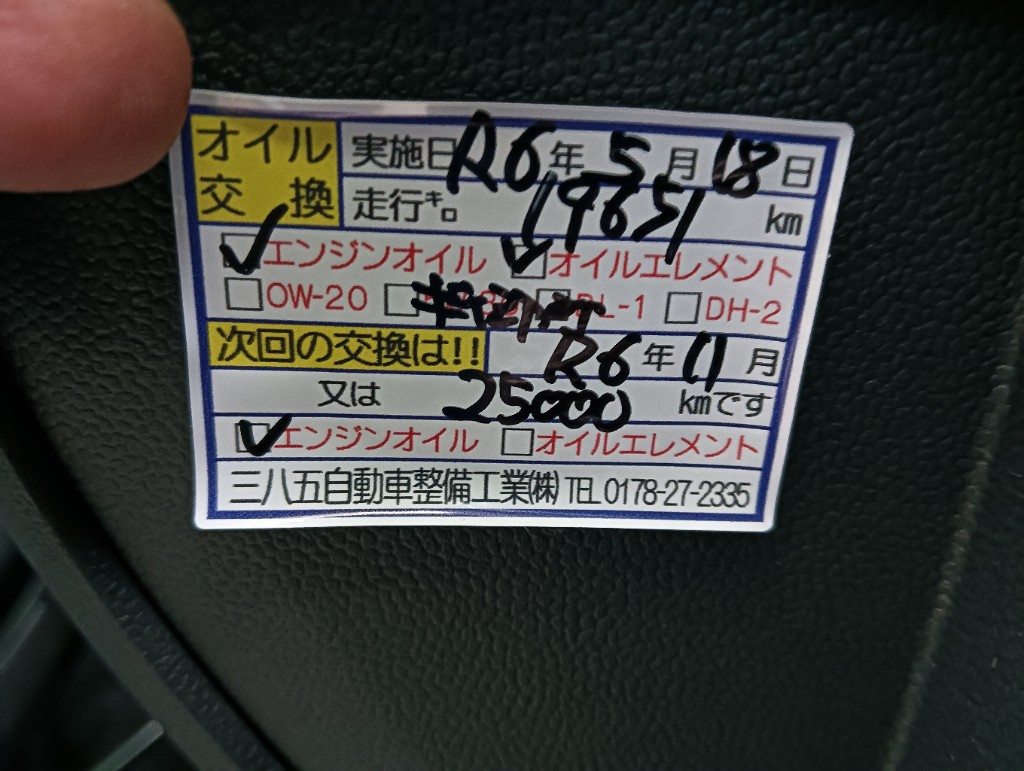 オイル交換
実施日 R6年 5月 18日
走行㌔。 19651 km
エンジンオイル オイルエレメント
OW-20 DL-1 DH-2
次回の交換は!! R6年 11月
又は 25000 kmです
エンジンオイル オイルエレメント
三八五自動車整備工業㈱ TEL 0178-27-2335